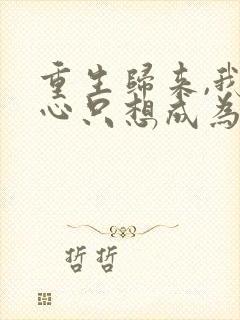 重生歸來,我
心只想成為
哲哲